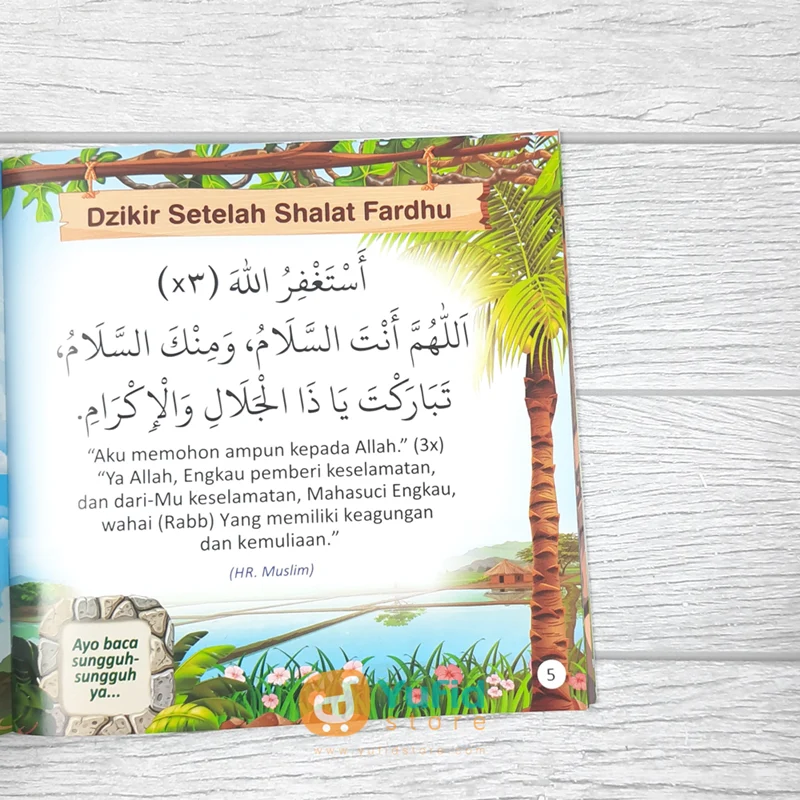 Dzikir Setelah Shalat Fardhu
أَسْتَغْفِرُ اللهَ (٣x)
اَللّٰهُمَّ أَنْتَ السَّلَامُ، وَمِنْكَ السَّلَامُ،
تَبَارَكْتَ يَا ذَا الْجَلَالِ وَالْإِكْرَامِ.
“Aku memohon ampun kepada Allah.” (3x)
“Ya Allah, Engkau pemberi keselamatan,
dan dari-Mu keselamatan, Mahasuci Engkau,
wahai (Rabb) Yang memiliki keagungan
dan kemuliaan.”
(HR. Muslim)
Ayo baca
sungguh-
sungguh
ya...
5
Yufid
store
www.yufidstore.com